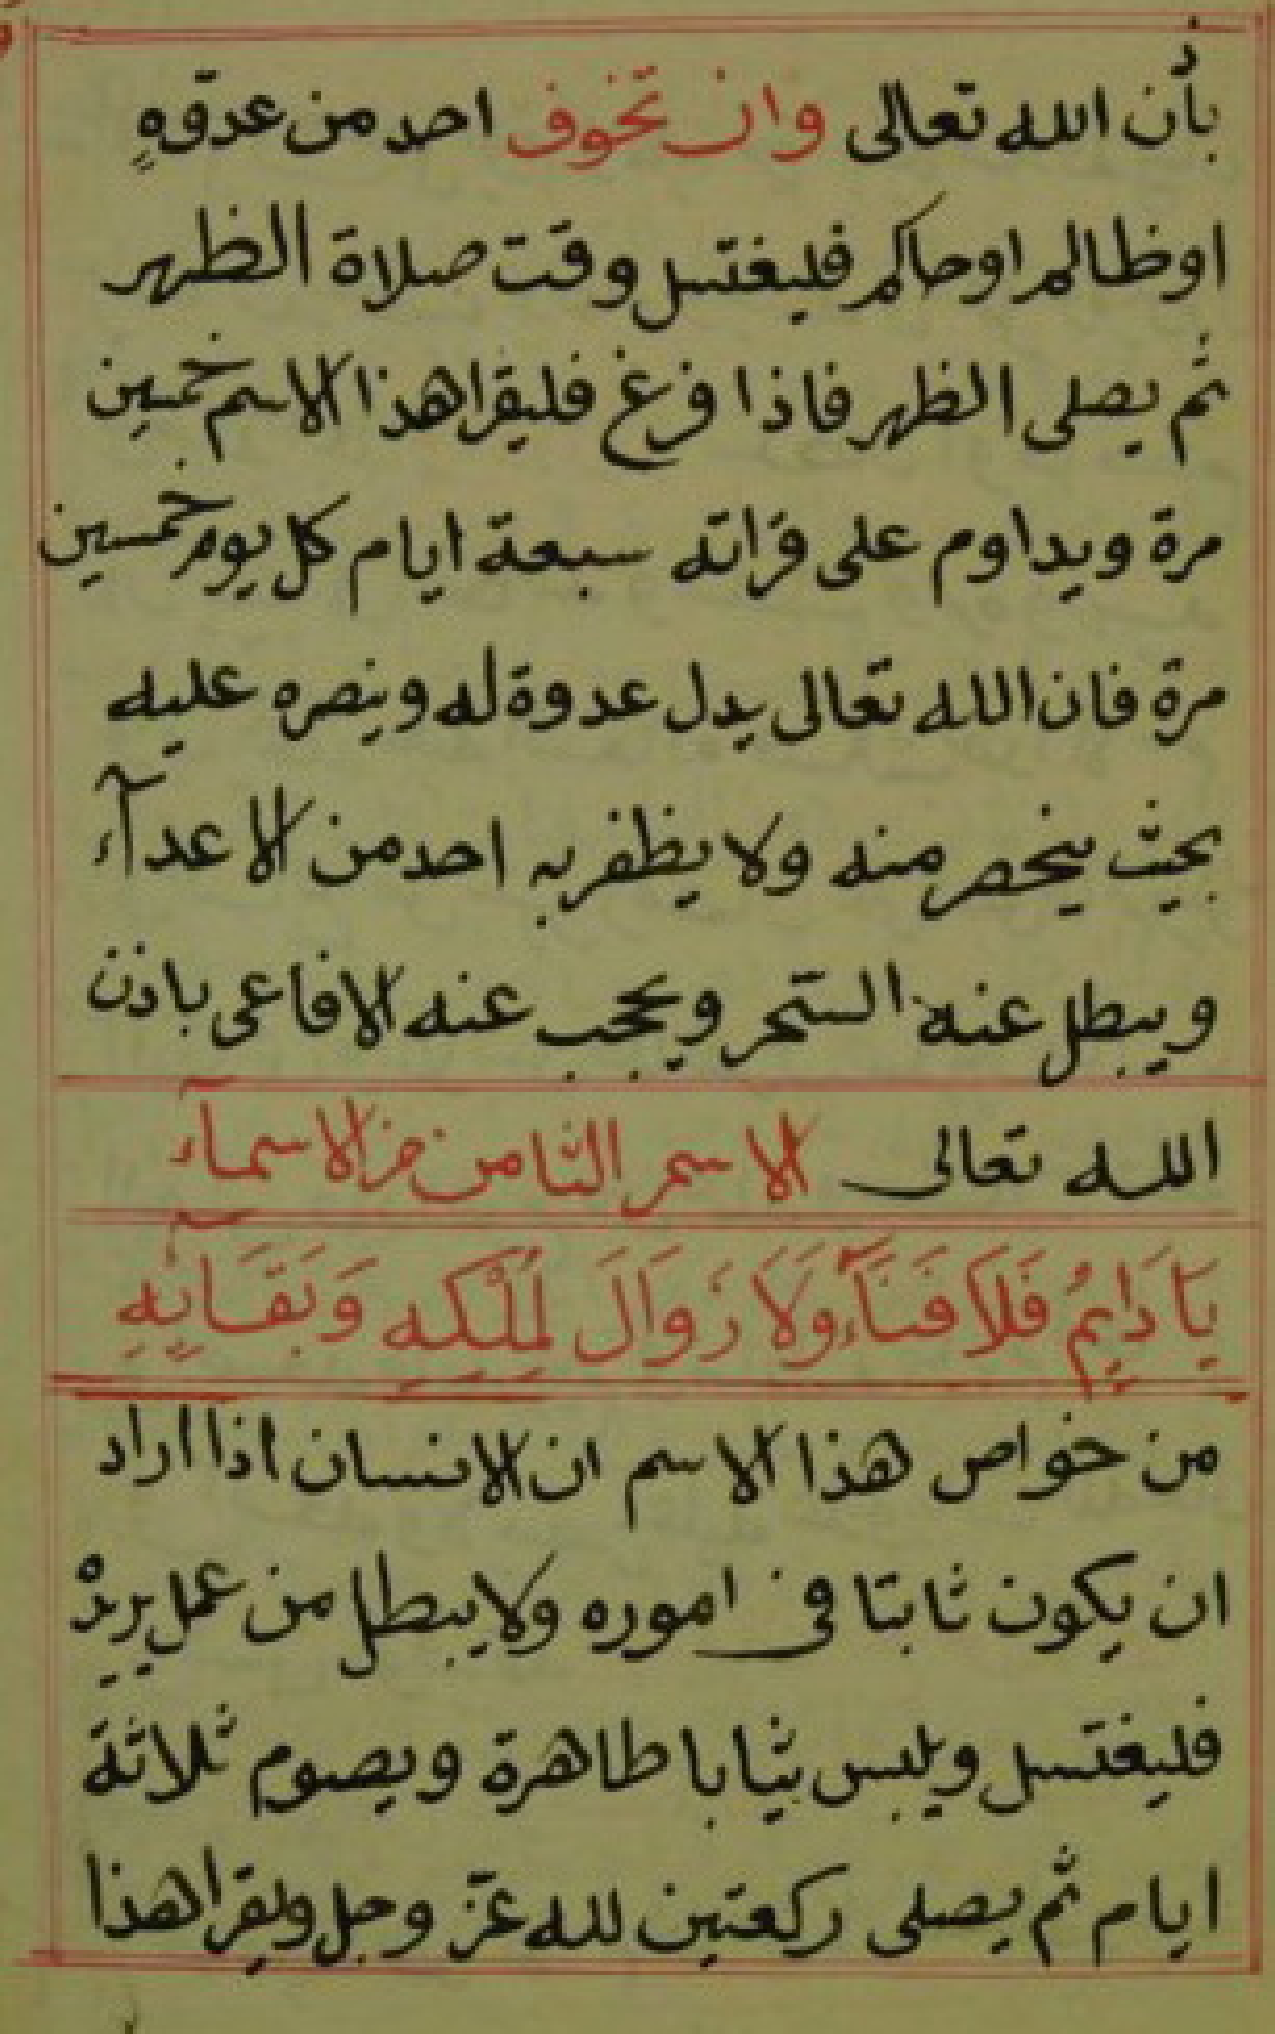 بأذن الله تعالى وان تخوف احد من عدوه
او ظالم او حاكم فليغتسل وقت صلاة الظهر
ثم يصلى الظهر فاذا فرغ فليقرا هذا الاسم خمسين
مرة ويداوم على قراته سبعة ايام كل يوم خمسين
مرة فان الله تعالى يدل عدوة له وينصره عليه
بحيث ينحصر منه ولا يظفر به احد من الاعدآء
ويبطل عنه السحر ويحجب عنه الافاعى باذن
الله تعالى الاسم الثامن من الاسمآء
يَا دَايِمُ فَلَا فَنَآءَ وَلَا زَوَالَ لِمُلْكِهِ وَبَقَآيِهِ
من خواص هذا الاسم ان الانسان اذا اراد
ان يكون ثابتا فى اموره ولا يبطل من عمل يريدْ
فليغتسل ويلبس ثيابا طاهرة ويصوم ثلاثة
ايام ثم يصلى ركعتين لله عزّ وجل ويقرا هذا